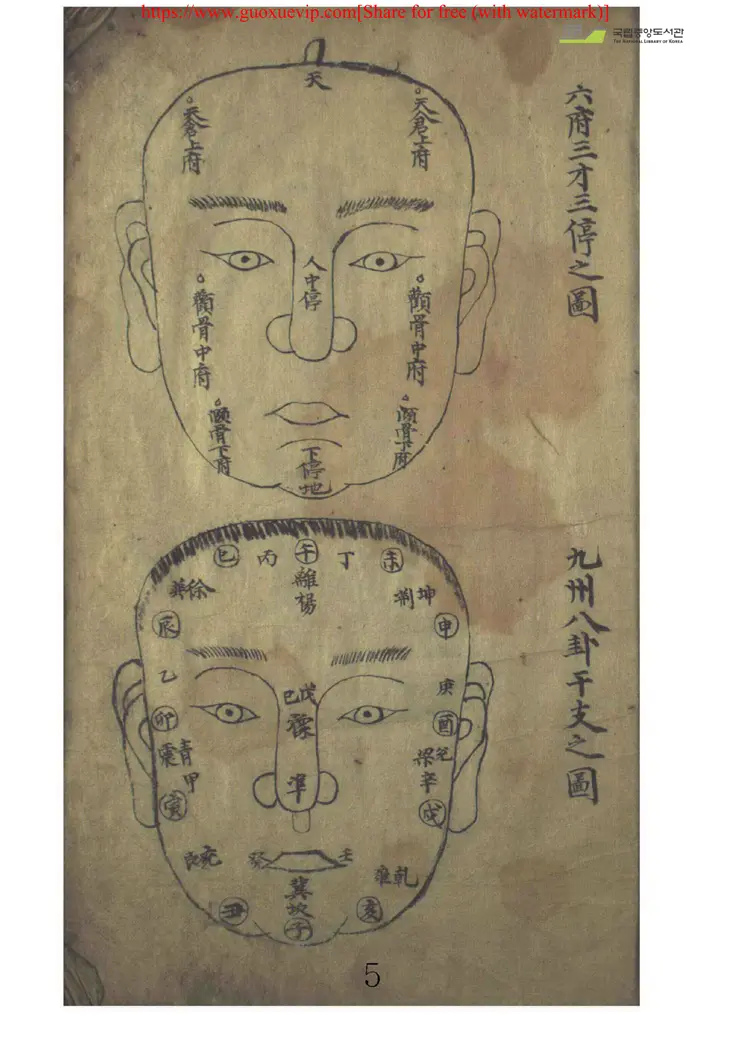 https://www.guoxuevip.com[Share for free (with watermark)]
국립중앙도서관
THE NATIONAL LIBRARY OF KOREA
六府三才三停之圖
天
天倉上府
天倉上府
人中停
顴骨中府
顴骨中府
頤骨下府
頤骨下府
下停地
九州八卦干支之圖
未
丁
午
丙
巳
離揚
坤
荊
徐
申
辰
庚
乙
戊
己
酉
卯
兌
梁
辛
青
震
甲
準
戌
寅
壬
癸
兗
乾
雍
冀
坎
子
亥
丑
5